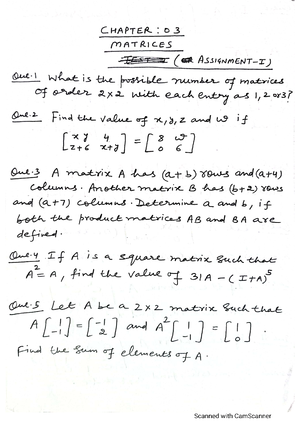 CHAPTER : 03
MATRICES
( ASSIGNMENT-I)
Que.1 What is the possible number of matrices
of order 2x2 with each entry as 1, 2 or 3?
Que.2 Find the value of x, y, z and ω if
[xy 4
z+6 x+y] = [8 ω
0 6]
Que.3 A matrix A has (a+b) rows and (a+4)
columns. Another matrix B has (b+2) rows
and (a+7) columns. Determine a and b, if
both the product matrices AB and BA are
defined.
Que.4 If A is a square matrix such that
A²=A, find the value of 31A-(I+A)⁵
Que.5 Let A be a 2x2 matrix such that
A [1
-1] = [-1
2] and A² [1
-1] = [1
0].
Find the sum of elements of A.
Scanned with CamScanner